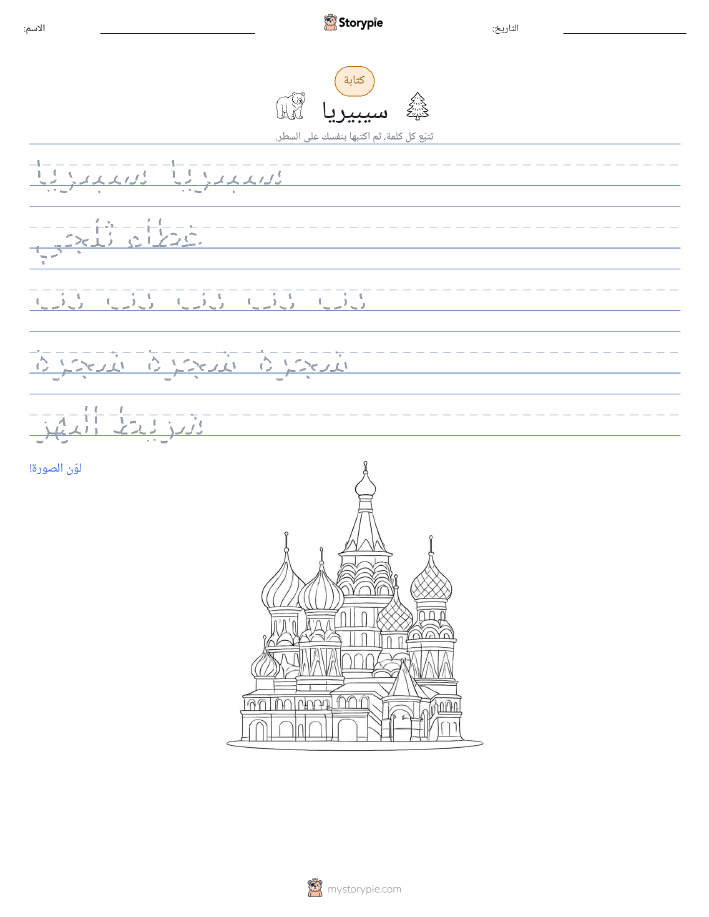 Storypie
الاسم:
التاريخ:
كتابة
سيبيريا
تتبّع كل كلمة، ثم اكتبها بنفسك على السطر.
سيبيريا سيبيريا
غطاء ثلجي
دب دب دب دب دب
شجرة شجرة شجرة
شريط النهر
لوّن الصورة!
mystorypie.com